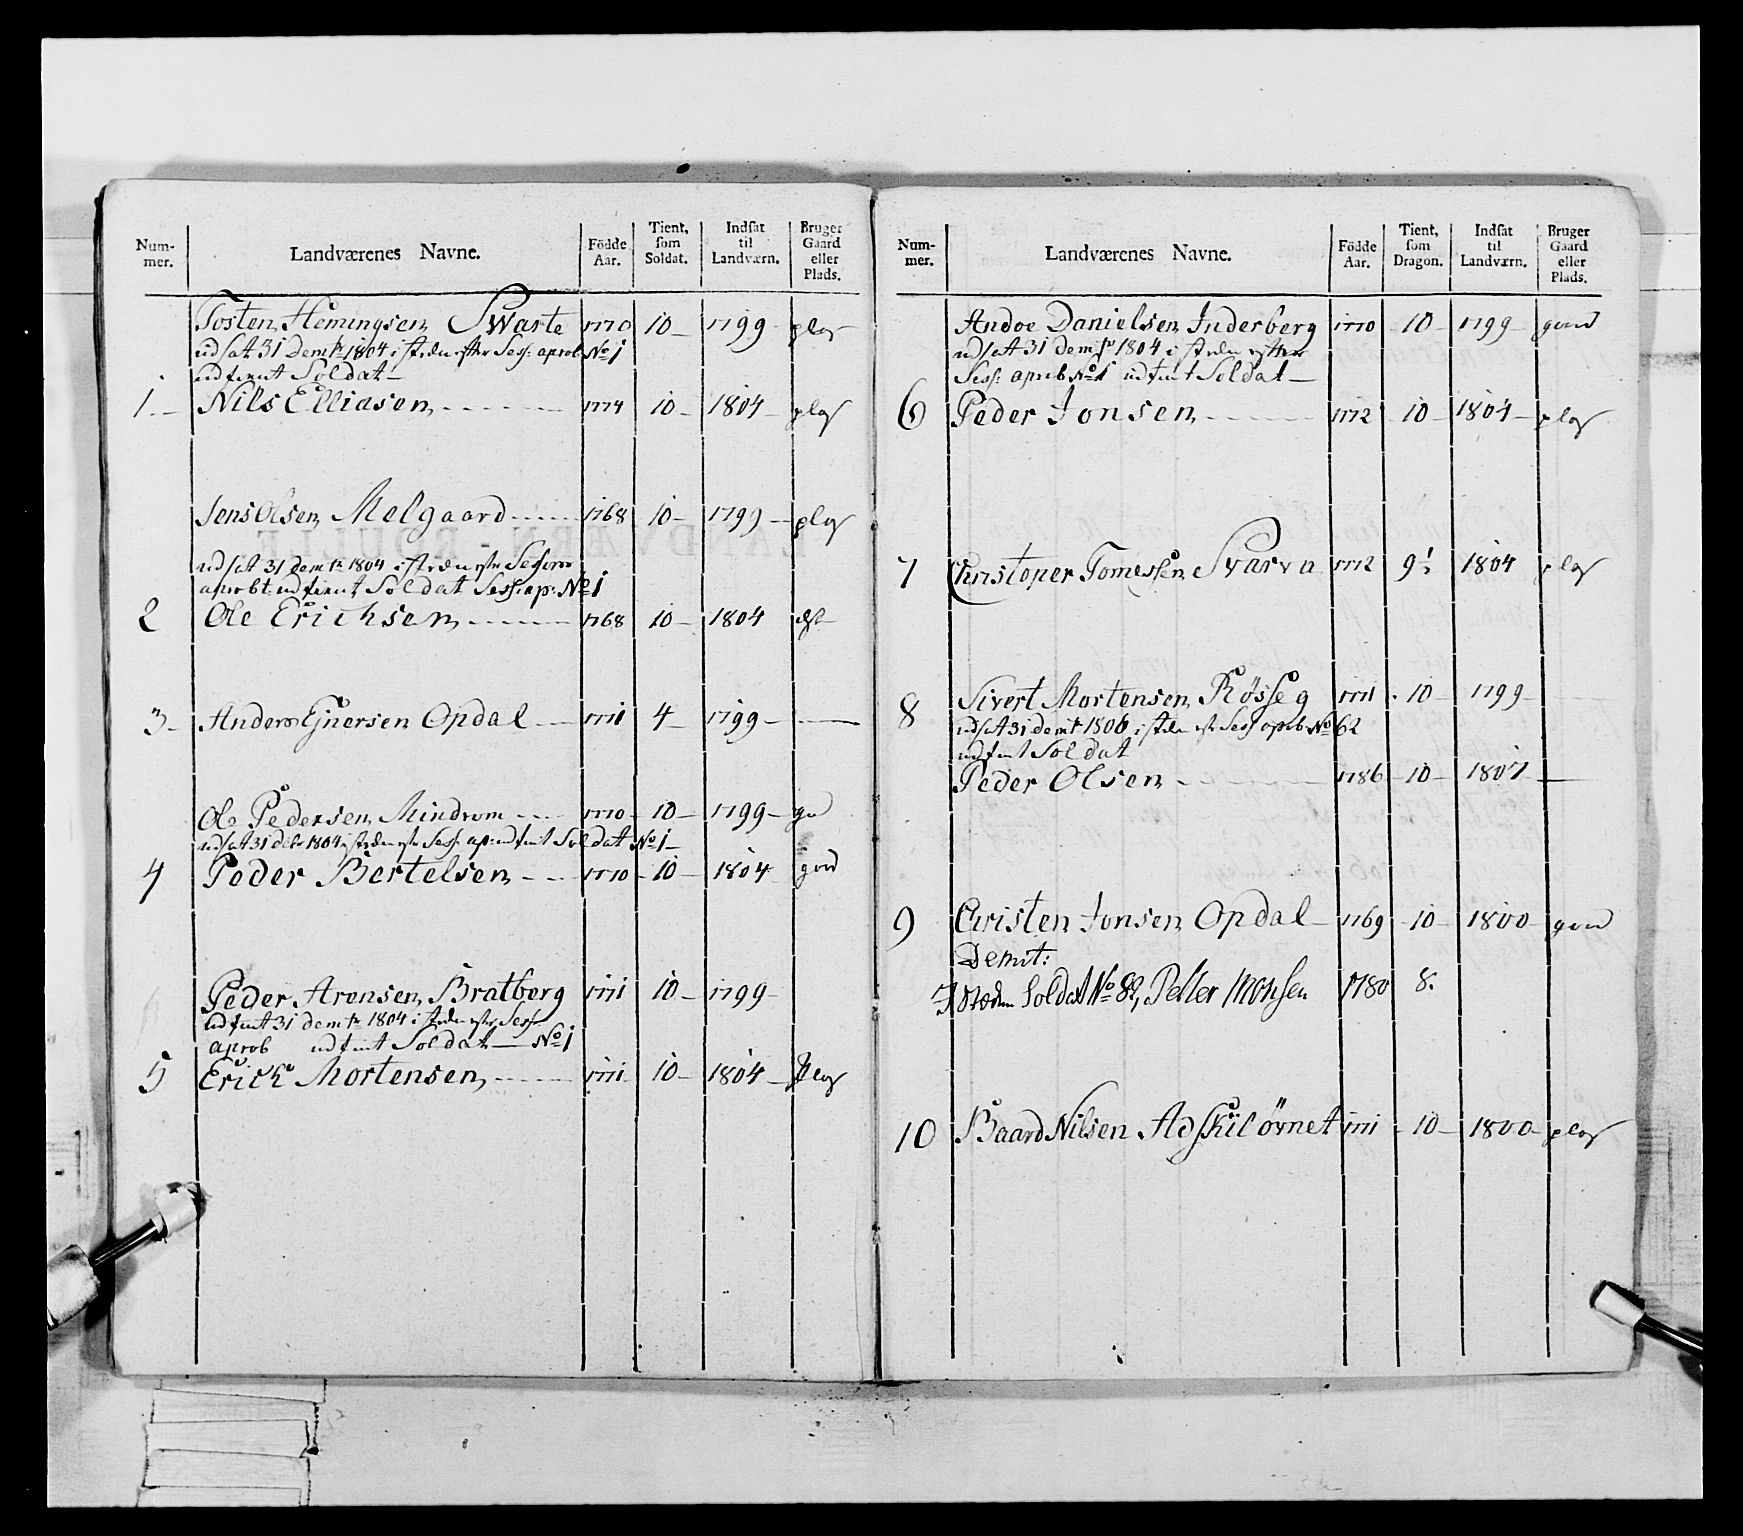 Num-
mer.
Landværenes Navne.
Födde
Aar.
Tient,
som
Soldat.
Indsat
til
Landværn.
Bruger
Gaard
eller
Plads.
Tosten Hemingsen Swarte 1770 10 1799 plas
udsat 31 Demr 1804 i stæden efter Sess: aprob No 1
udtient Soldat
1. Nils Elliasen 1774 10 1804 plas
Jens Olsen Melgaard 1768 10 1799 plas
udsat 31 demr 1804 i stæden eftr Sessions
aprobt: udtient Soldat Sess: ap: No 1
2 Ole Erichsen 1768 10 1804
3 Anders Ejnersen Opdal 1771 4 1799
Ole Pedersen Mindrom 1770 10 1799
udsat 31 debr 1804 i stæden eftr Sess: ap: udtint Soldat No 1
4 Peder Bertelsen 1770 10 1804 gord
Peder Arensen Bratberg 1771 10 1799
udtint 31 demr 1804 i stæden eftr Sess:
aprob udtint Soldat No 1
5 Erick Mortensen 1771 10 1804 Plas
Num-
mer.
Landværenes Navne.
Födde
Aar.
Tient,
som
Dragon.
Indsat
til
Landværn.
Bruger
Gaard
eller
Plads.
Andoe Danielsen Inderberg 1770 10 1799 gord
udsat 31 demr 1804 i stæden efter
Sess: aprob No 1 udtint Soldat
6 Peder Jonsen 1772 10 1804 plas
7 Christoper Tomessen Svarva 1772 9½ 1804 plas
8 Sivert Mortensen Røsseg 1771 10 1799
udsat 31 demr 1806 i stæden eftr Sess aprob No 62
udtint Soldat
Peder Olsen 1786 10 1807
9 Christen Jonsen Opdal 1769 10 1800 gord
Demit:
I Stæden Soldat No 82, Petter Monsen 1780 8.
10 Baard Nilsen Adskilørnet 1771 10 1800 plas